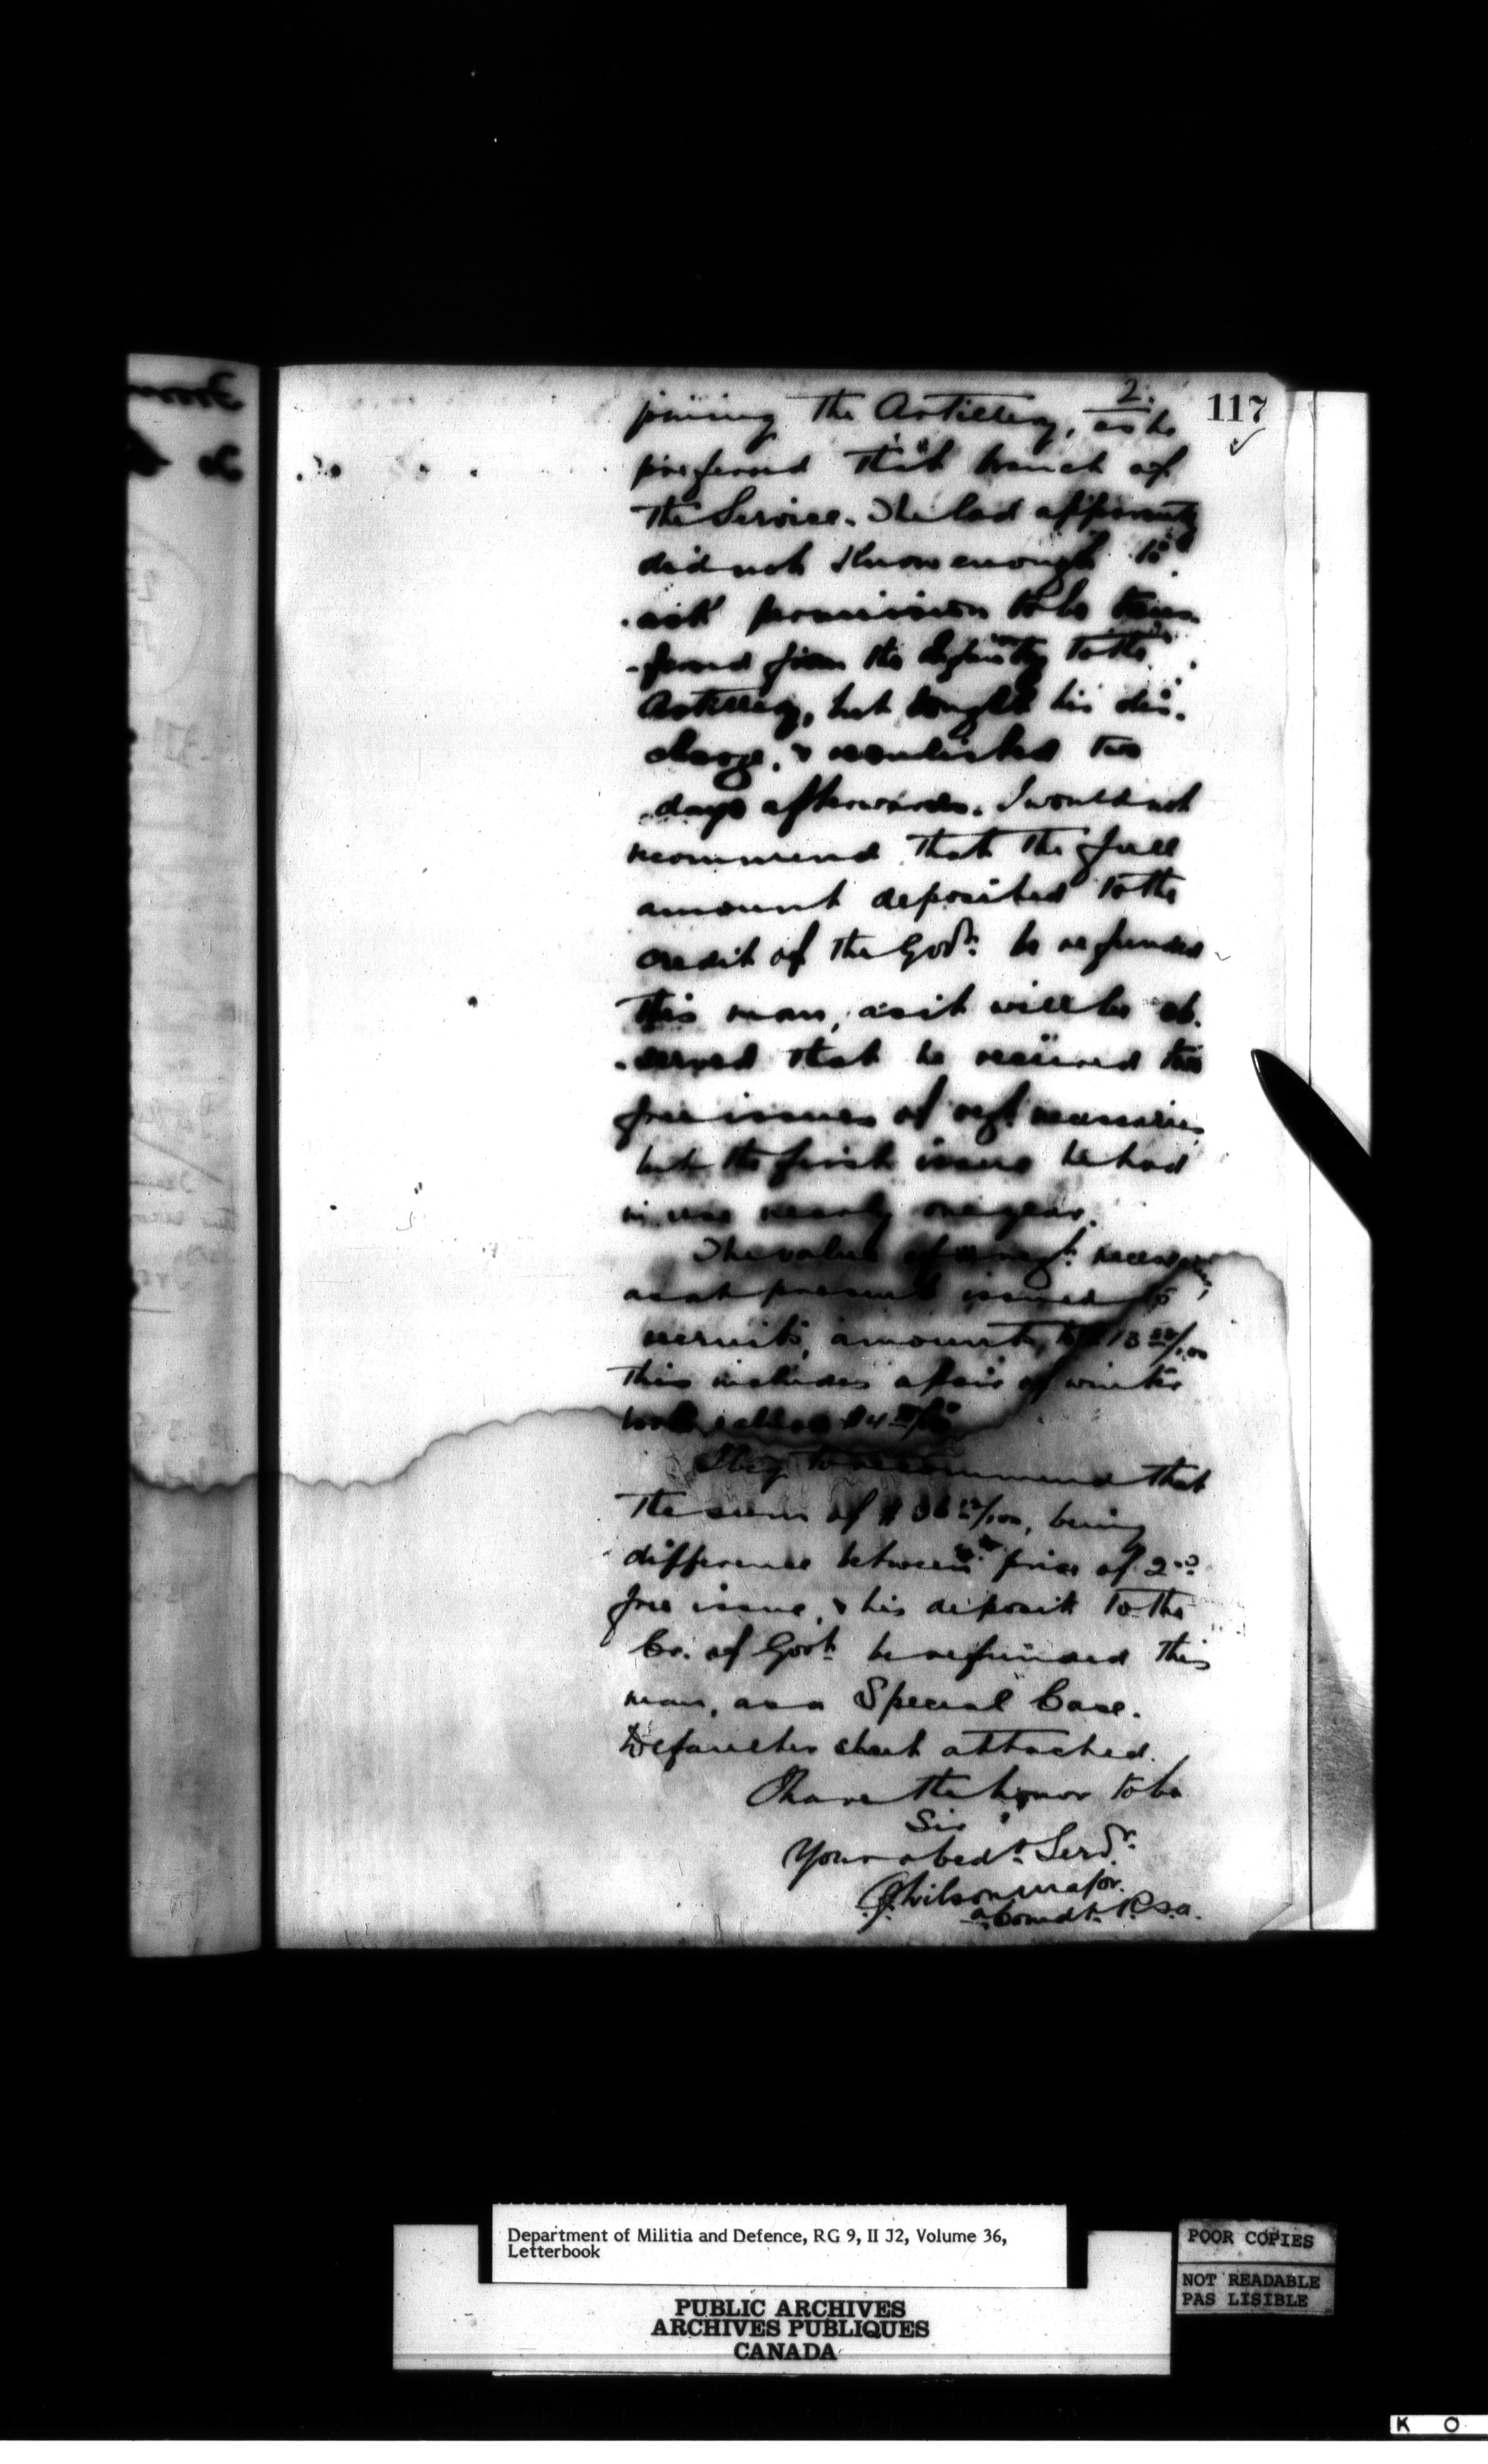 2.
117
joining the Artillery, as he
preferred that branch of
the Service. The lad apparently
did not know enough to
ask permission to be trans
-ferred from the Infantry to the
Artillery, but bought his dis-
charge, & reenlisted two
days afterwards. I would not
recommend that the full
amount deposited to the
credit of the Govt. be refunded
this man, as it will be ob-
-served that he received two
free issues of regt. necessaries
but the first issue he had
in use nearly one year.
The value of regt. necessaries,
as at present issued to
recruits, amounts to $13
this includes a pair of winter
$4
I beg to recommend that
the sum of $36 12/100, being
difference between price of 2nd
free issue, & his deposit to the
Cr. of Govt. be refunded this
man, as a Special Case.
Defaulter sheet attached.
I have the honor to be
Sir
Your obedt. Servt.
Wilson Major.
a Comdt. R.S.A.
Department of Militia and Defence, RG 9, II J2, Volume 36,
Letterbook
PUBLIC ARCHIVES
ARCHIVES PUBLIQUES
CANADA
POOR COPIES
NOT READABLE
PAS LISIBLE
K O